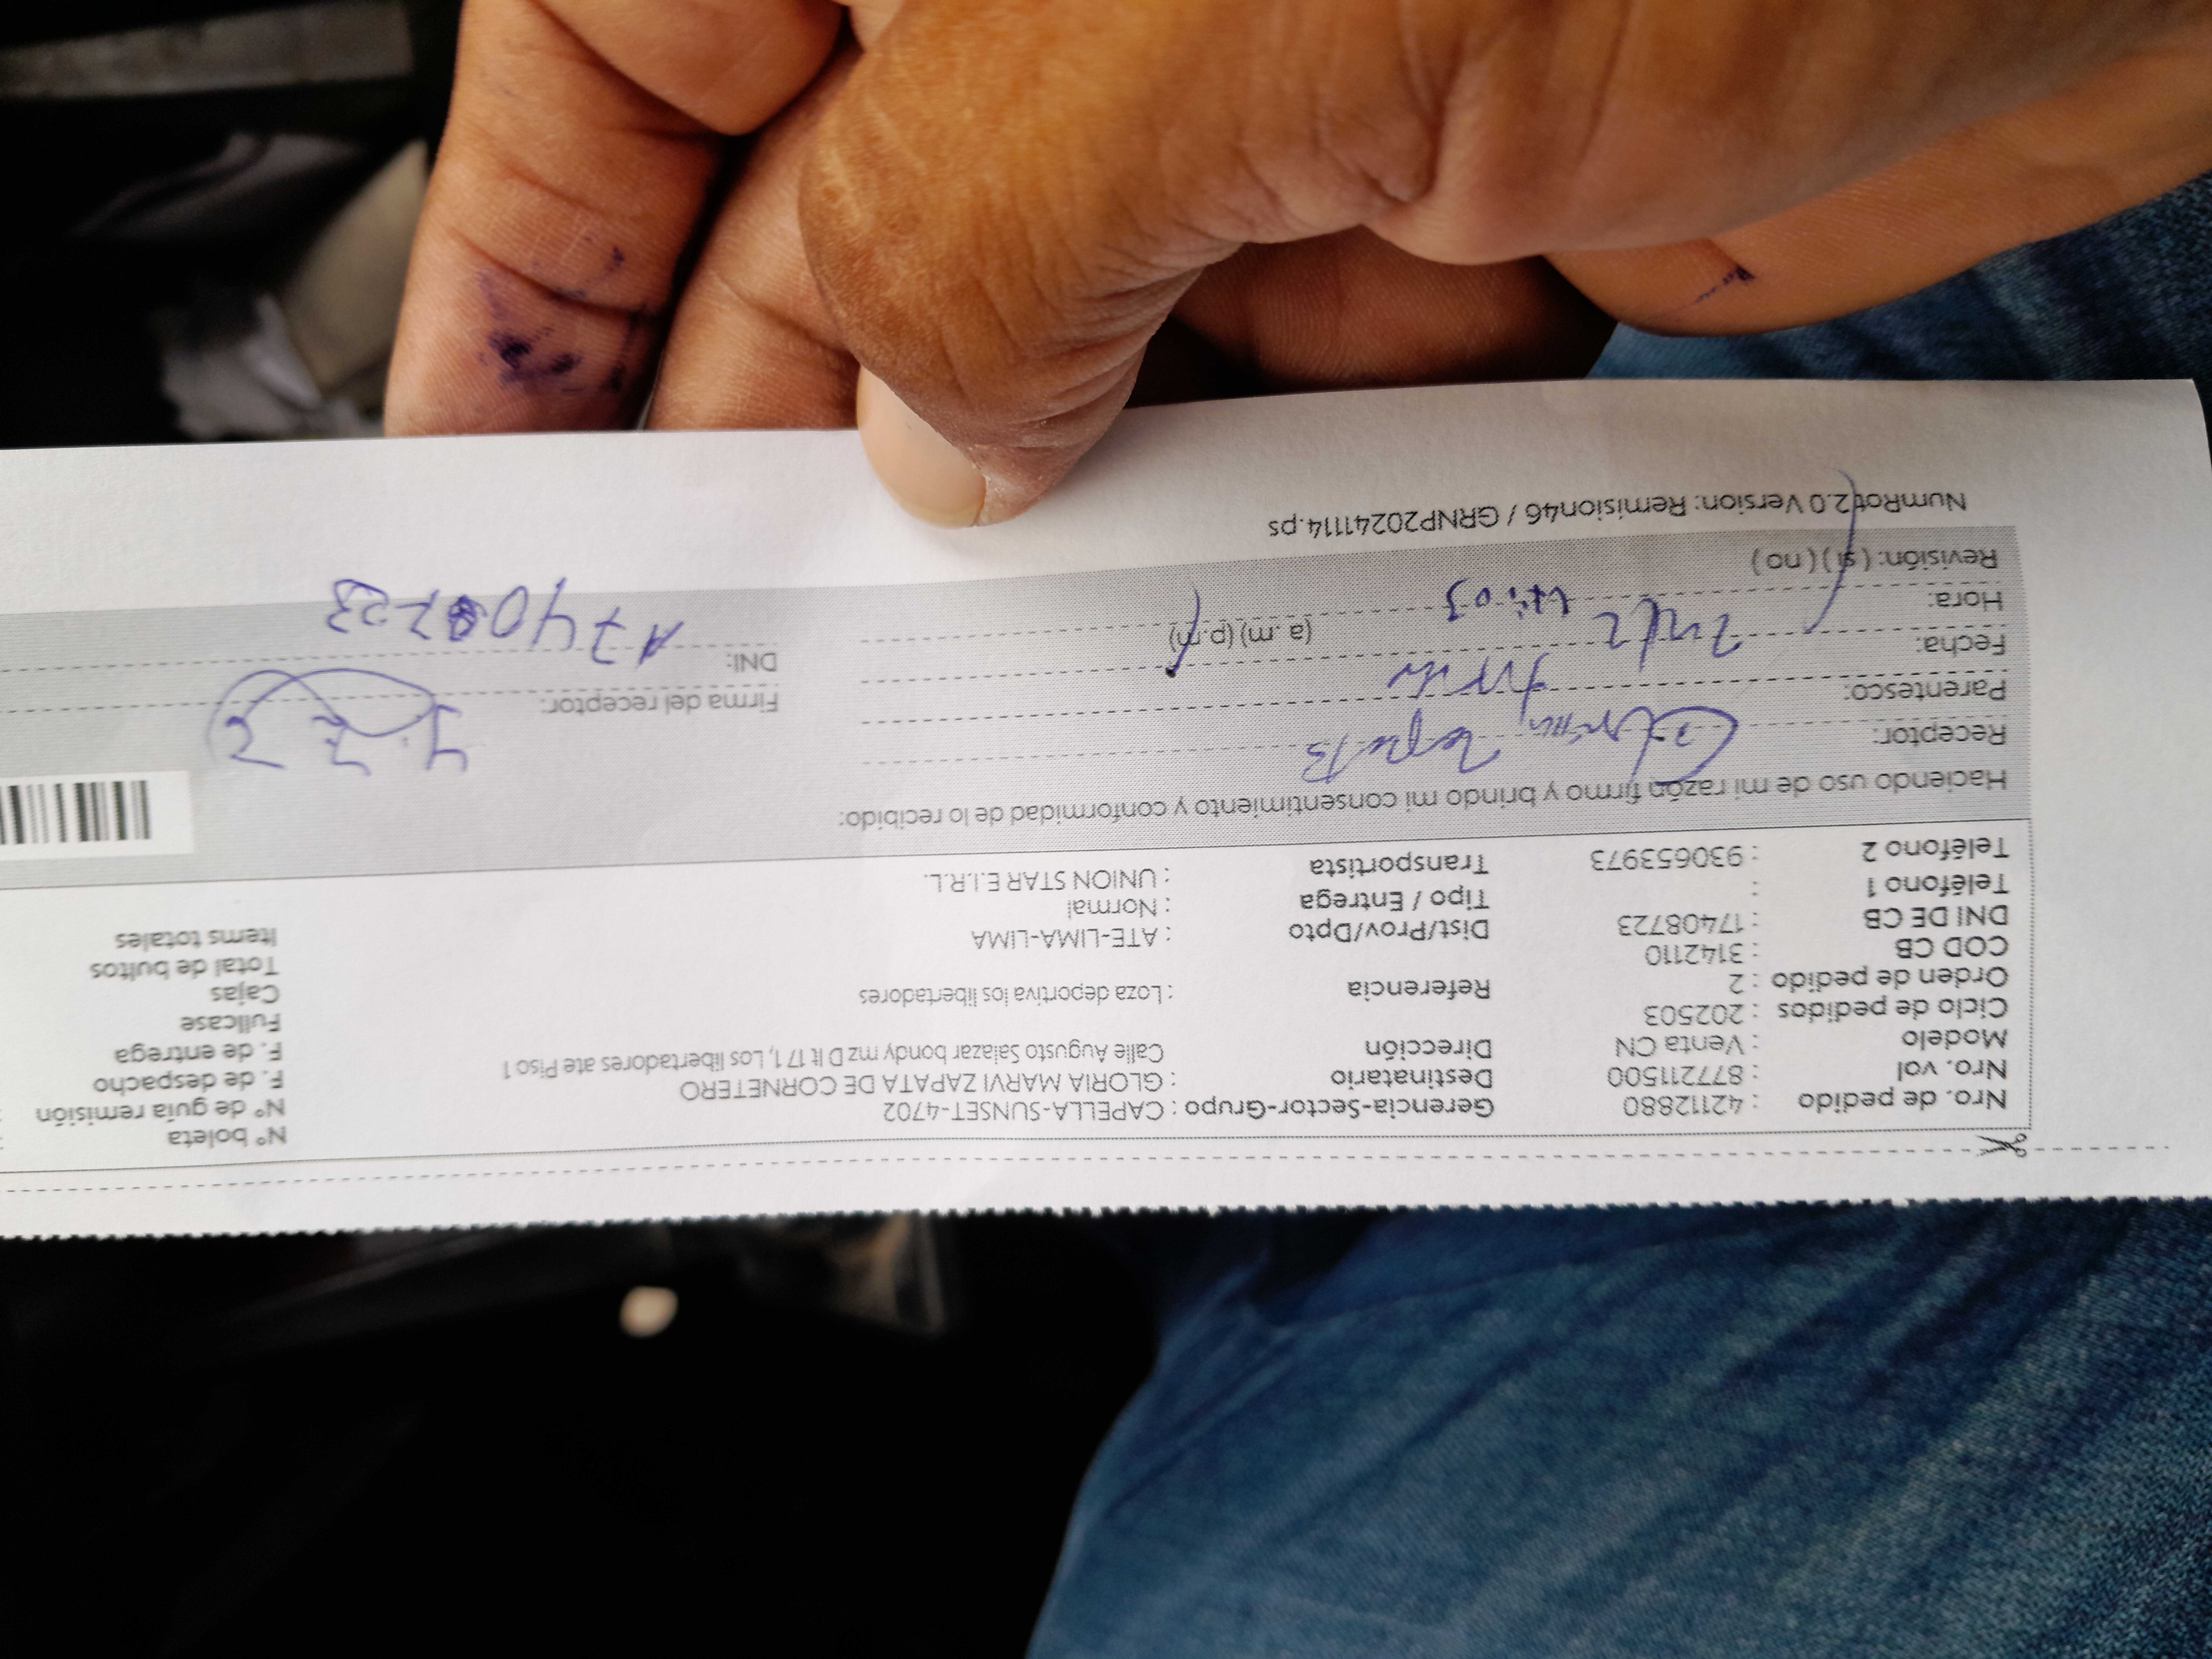 Nro. de pedido : 42112880 Gerencia-Sector-Grupo : CAPELLA-SUNSET-4702 N° boleta
Nro. vol : 877211500 Destinatario : GLORIA MARVI ZAPATA DE CORNETERO N° de guía remisión
Modelo : Venta CN Dirección Calle Augusto Salazar bondy mz D lt 17 1, Los libertadores ate Piso 1 F. de despacho
Ciclo de pedidos : 202503 F. de entrega
Orden de pedido : 2 Referencia : Loza deportiva los libertadores Fullcase
COD CB : 3142110 Cajas
DNI DE CB : 17408723 Dist/Prov/Dpto : ATE-LIMA-LIMA Total de bultos
Teléfono 1 : Tipo / Entrega : Normal Items totales
Teléfono 2 : 930653973 Transportista : UNION STAR E.I.R.L.
Haciendo uso de mi razón firmo y brindo mi consentimiento y conformidad de lo recibido:
Receptor:
Parentesco: Firma del receptor:
Fecha: DNI: 17408723
Hora: (a. m) (p. m)
Revisión: ( si ) ( no )
NumRot2.0 Version: Remision46 / GRNP20241114.ps